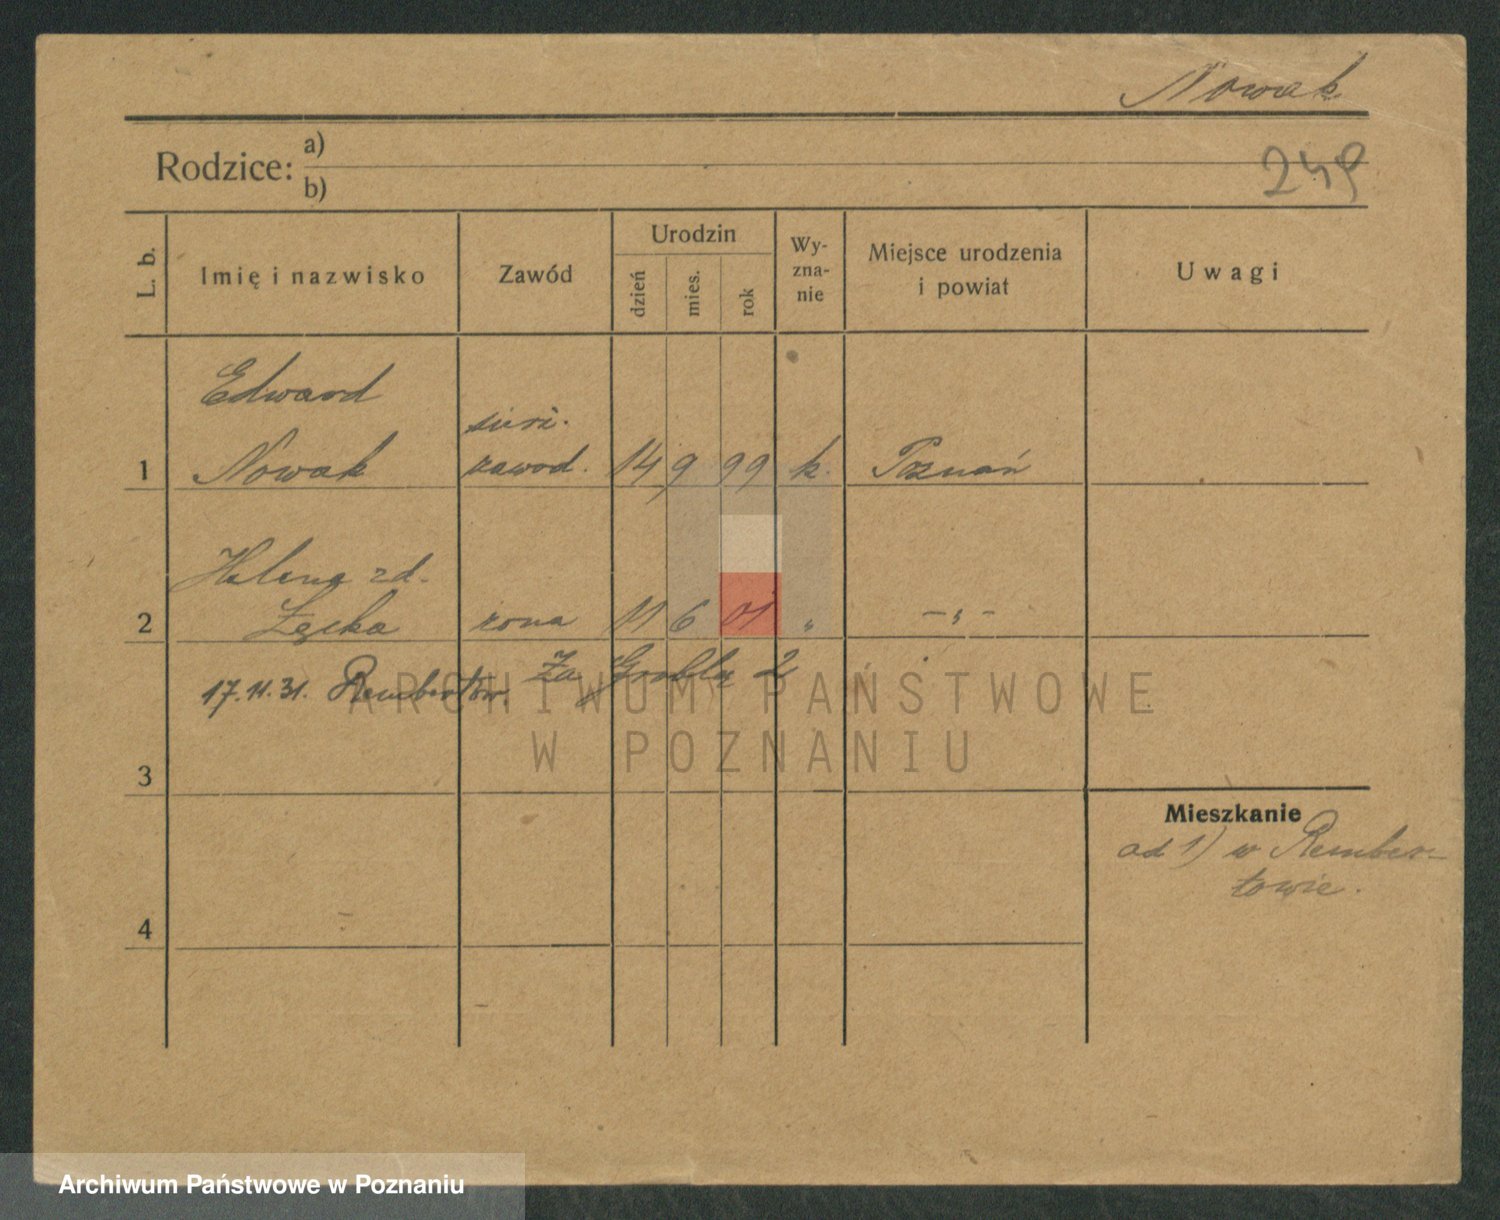 Nowak
Rodzice: a)
b)
249
L. b.
Imię i nazwisko
Zawód
Urodzin
dzień
mies.
rok
Wy-
zna-
nie
Miejsce urodzenia
i powiat
Uwagi
Edward
sierż.
1 Nowak zawod. 14 9 99 k. Poznań
Helena zd.
2 Łęcka żona 11 6 01 „ -„-
Za Groblą 2
17.11.31. Rembertów.
ARCHIWUM PAŃSTWOWE
W POZNANIU
3
Mieszkanie
ad 1) w Rember-
towie.
4
Archiwum Państwowe w Poznaniu